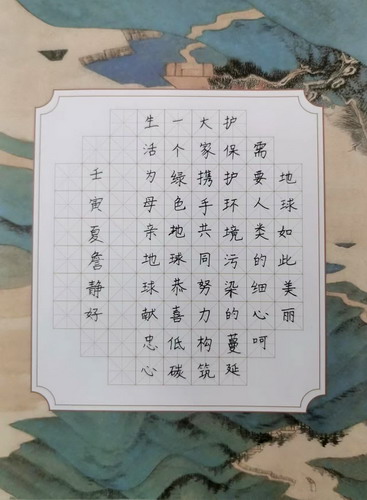 地球如此美丽
需要人类的细心呵
护保护环境污染的蔓延
大家携手共同努力构筑
一个绿色地球恭喜低碳
生活为母亲地球献忠心
壬寅夏詹静好